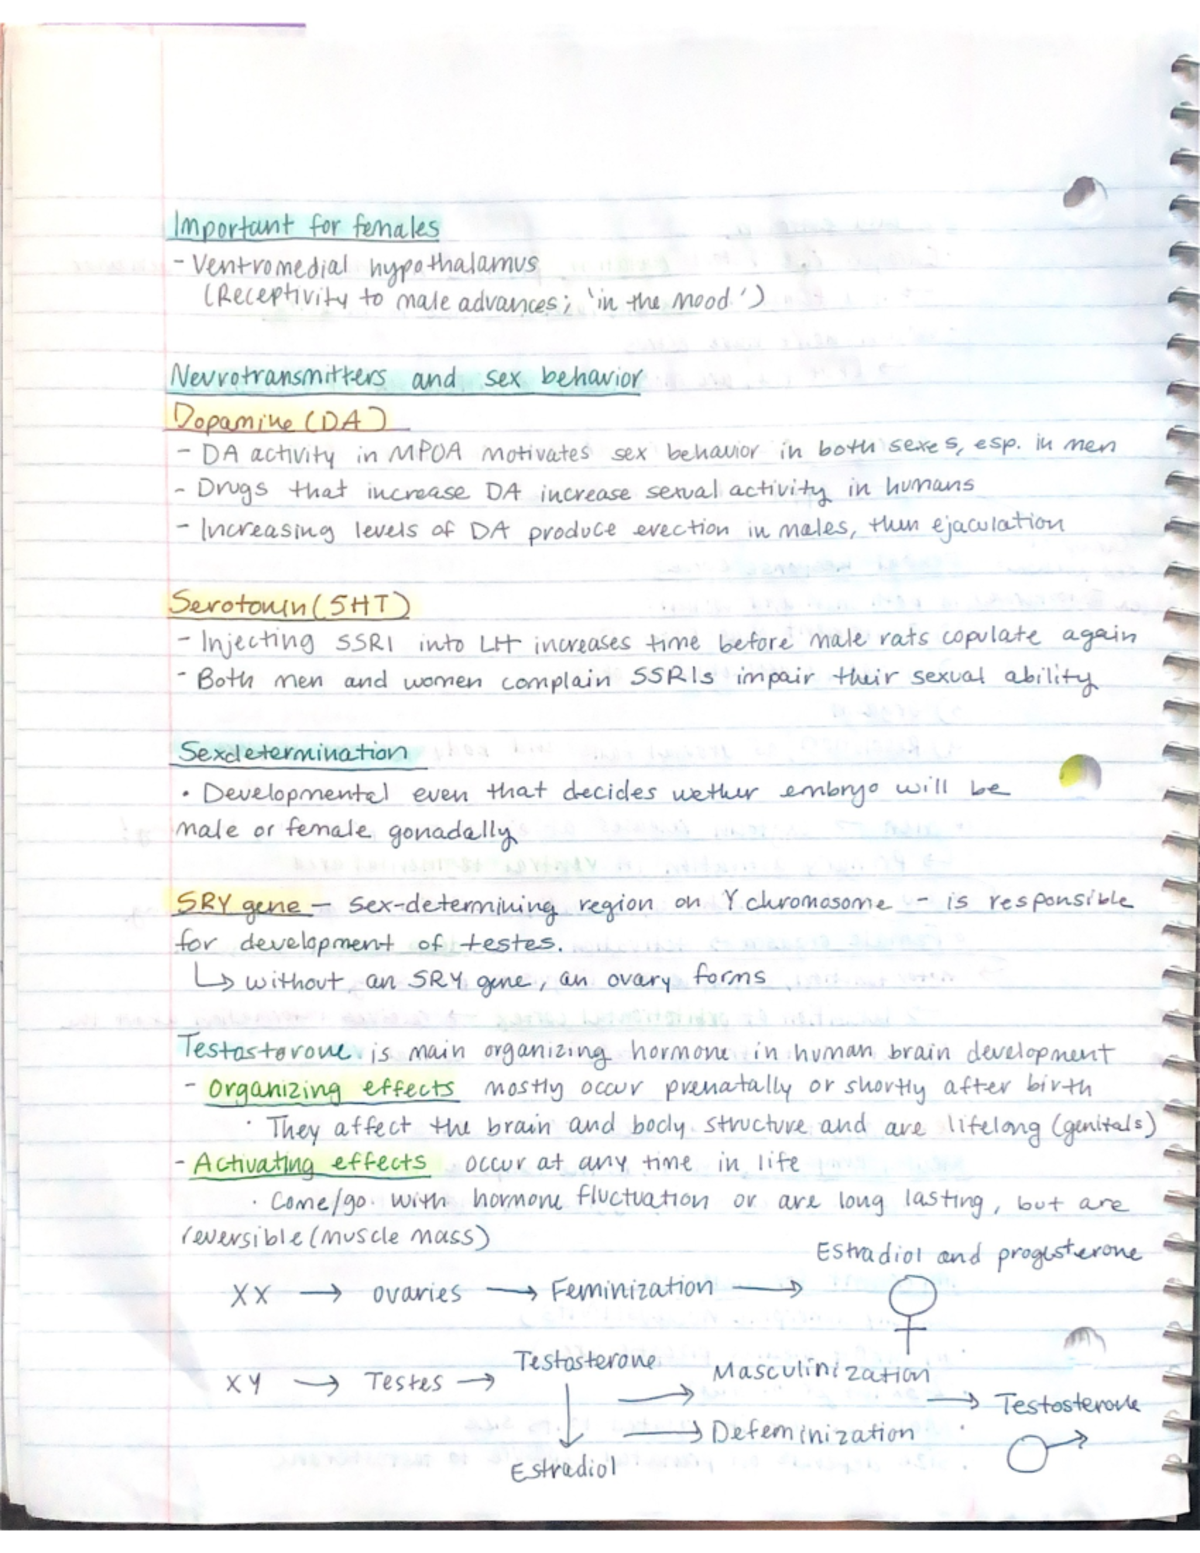 Important for females
- Ventromedial hypothalamus
(Receptivity to male advances; 'in the mood.')
Neurotransmitters and sex behavior
Dopamine (DA)
- DA activity in MPOA motivates sex behavior in both sexes, esp. in men
- Drugs that increase DA increase sexual activity in humans
- Increasing levels of DA produce erection in males, then ejaculation
Serotonin (5HT)
- Injecting SSRI into LH increases time before male rats copulate again
- Both men and women complain SSRIs impair their sexual ability
Sex determination
• Developmental even that decides wether embryo will be
male or female gonadally
SRY gene – sex-determining region on Y chromosome – is responsible
for development of testes.
↳ without an SRY gene, an ovary forms
Testosterone is main organizing hormone in human brain development
- Organizing effects mostly occur prenatally or shortly after birth
• They affect the brain and body structure and are lifelong (genitals)
- Activating effects occur at any time in life
• Come/go with hormone fluctuation or are long lasting, but are
reversible (muscle mass)
Estradiol and progesterone
XX → ovaries → Feminization → ♀
Testosterone
Masculinization
XY → Testes → → → Testosterone
↓ → Defeminization ♂
Estradiol